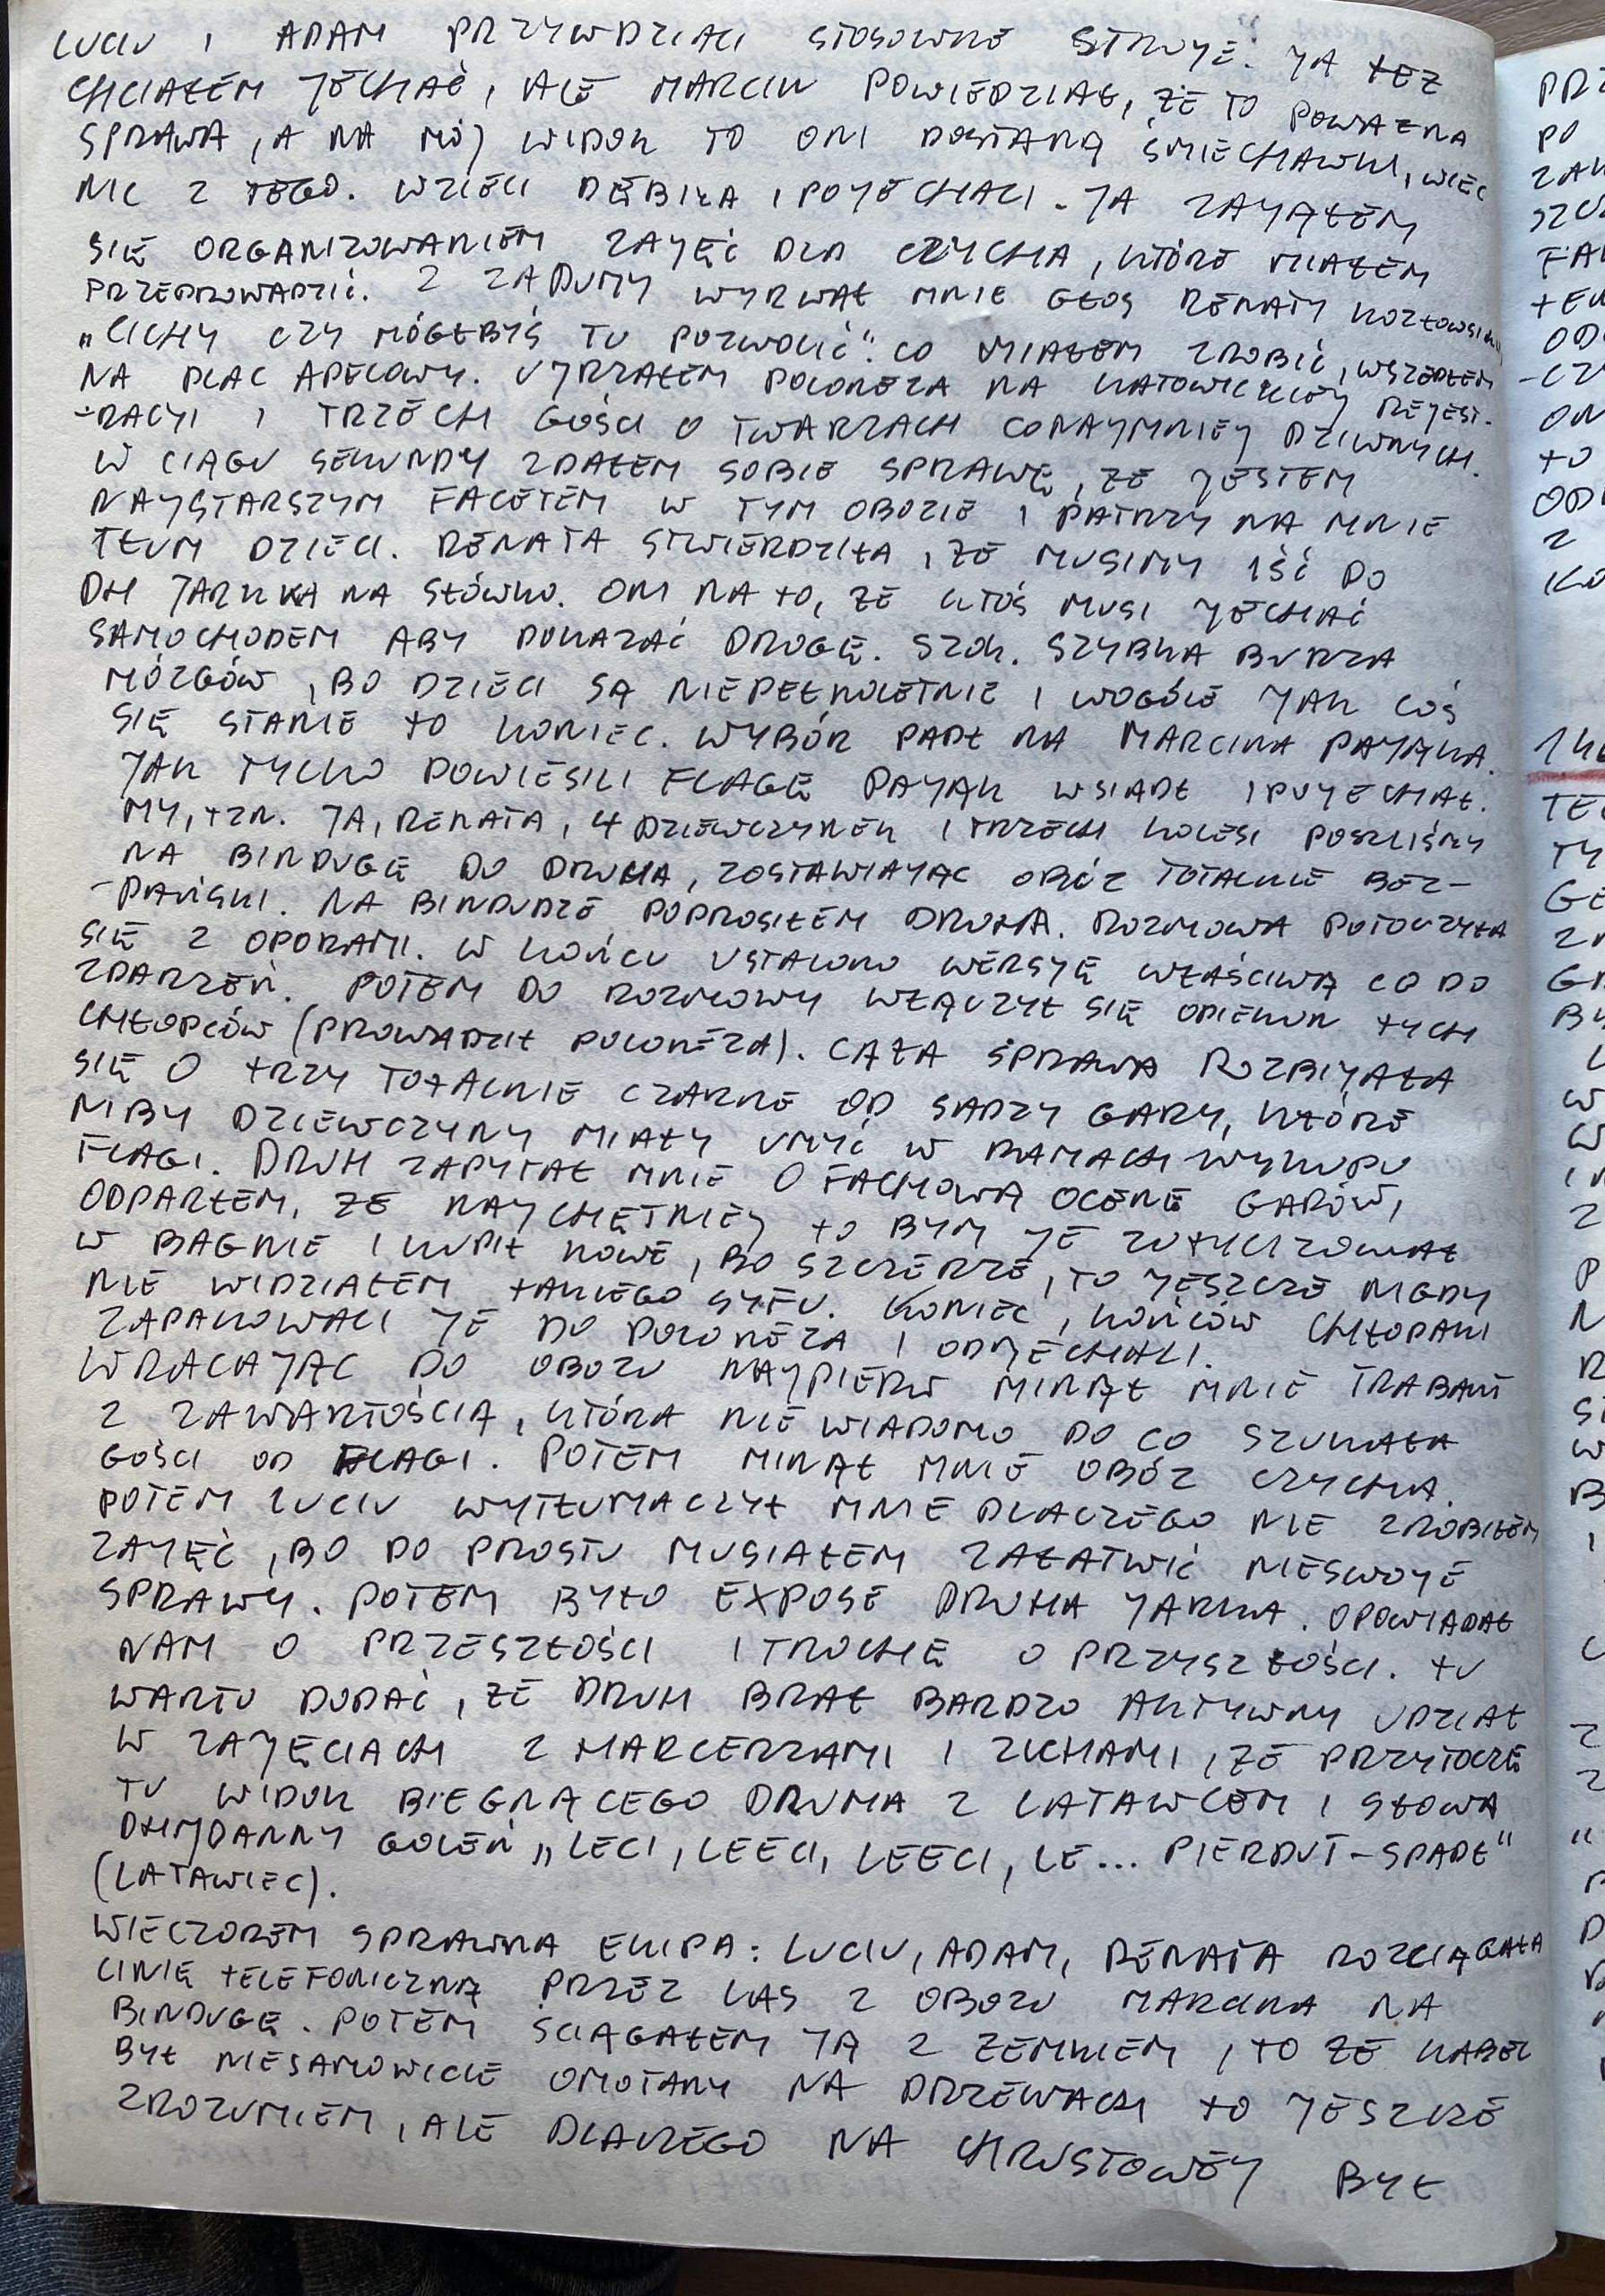 LUCIU I ADAM PRZYWDZIALI STOSOWNE STROJE. JA TEŻ
CHCIAŁEM JECHAĆ, ALE MARCIN POWIEDZIAŁ, ŻE TO POWAŻNA
SPRAWA, A NA MÓJ WIDOK TO ONI DOSTANĄ ŚMIECHAWKI, WIĘC
NIC Z TEGO. WZIELI DĘBIŁA I POJECHALI. JA ZAJĄŁEM
SIĘ ORGANIZOWANIEM ZAJĘĆ DLA CZYCHA, KTÓRE MIAŁEM
PRZEPROWADZIĆ. Z ZADUMY WYRWAŁ MNIE GŁOS RENATY KOZŁOWSKIEJ
„CICHY CZY MÓGŁBYŚ TU POZWOLIĆ". CO MIAŁEM ZROBIĆ, WSZEDŁEM
NA PLAC APELOWY. UJRZAŁEM POLONEZA NA KATOWICKIEJ REJEST-
-RACJI I TRZECH GOŚCI O TWARZACH CONAJMNIEJ DZIWNYCH.
W CIĄGU SEKUNDY ZDAŁEM SOBIE SPRAWĘ, ŻE JESTEM
NAJSTARSZYM FACETEM W TYM OBOZIE I PATRZY NA MNIE
TŁUM DZIECI. RENATA STWIERDZIŁA, ŻE MUSIMY IŚĆ DO
DH JARKA NA SŁÓWKO. ONI NA TO, ŻE KTOŚ MUSI JECHAĆ
SAMOCHODEM ABY POKAZAĆ DROGĘ. SZOK. SZYBKA BURZA
MÓZGÓW, BO DZIECI SĄ NIEPEŁNOLETNIE I WOGÓLE JAK COŚ
SIĘ STANIE TO KONIEC. WYBÓR PADŁ NA MARCINA PAJĄKA.
JAK TYLKO POWIESILI FLAGĘ PAJĄK WSIADŁ I POJECHAŁ.
MY, TZN. JA, RENATA, 4 DZIEWCZYNEK I TRZECH KOLESI POSZLIŚMY
NA BINDUGĘ DO DRUHA, ZOSTAWIAJĄC OBÓZ TOTALNIE BEZ-
-PAŃSKI. NA BINDUDZE POPROSIŁEM DRUHA. ROZMOWA POTOCZYŁA
SIĘ Z OPORAMI. W KOŃCU USTALONO WERSJĘ WŁAŚCIWĄ CO DO
ZDARZEŃ. POTEM DO ROZMOWY WŁĄCZYŁ SIĘ OPIEKUN TYCH
CHŁOPCÓW (PROWADZIŁ POLONEZA). CAŁA SPRAWA ROZBIJAŁA
SIĘ O TRZY TOTALNIE CZARNE OD SADZY GARY, KTÓRE
NIBY DZIEWCZYNY MIAŁY UMYĆ W RAMACH WYKUPU
FLAGI. DRUH ZAPYTAŁ MNIE O FACHOWĄ OCENĘ GARÓW,
ODPARŁEM, ŻE NAJCHĘTNIEJ TO BYM JE ZUTYLIZOWAŁ
W BAGNIE I KUPIŁ NOWE, BO SZCZERZE, TO JESZCZE NIGDY
NIE WIDZIAŁEM TAKIEGO SYFU. KONIEC, KOŃCÓW CHŁOPAKI
ZAPAKOWALI JE DO POLONEZA I ODJECHALI.
WRACAJĄC DO OBOZU NAJPIERW MINĄŁ MNIE TRABANT
Z ZAWARTOŚCIĄ, KTÓRA NIE WIADOMO PO CO SZUKAŁA
GOŚCI OD FLAGI. POTEM MINĄŁ MNIE OBÓZ CZYCHA.
POTEM LUCIU WYTŁUMACZYŁ MNIE DLACZEGO NIE ZROBIŁEM
ZAJĘĆ, BO PO PROSTU MUSIAŁEM ZAŁATWIĆ NIESWOJE
SPRAWY. POTEM BYŁO EXPOSE DRUHA JARKA. OPOWIADAŁ
NAM O PRZESZŁOŚCI I TROCHĘ O PRZYSZŁOŚCI. TU
WARTO DODAĆ, ŻE DRUH BRAŁ BARDZO AKTYWNY UDZIAŁ
W ZAJĘCIACH Z HARCERZAMI I ZUCHAMI, ŻE PRZYTOCZĘ
TU WIDOK BIEGNĄCEGO DRUHA Z LATAWCEM I SŁOWA
DANNY GOLEŃ „LECI, LEECI, LEECI, LE... PIERDUT-SPADŁ"
(LATAWIEC).
WIECZOREM SPRAWNA EKIPA: LUCIU, ADAM, RENATA ROZCIĄGAŁA
LINIĘ TELEFONICZNĄ PRZEZ LAS Z OBOZU MARCINA NA
BINDUGĘ. POTEM ŚCIĄGAŁEM JĄ Z ZEMKIEM, TO ŻE KABEL
BYŁ NIESAMOWICIE OMOTANY NA DRZEWACH TO JESZCZE
ZROZUMIEM, ALE DLACZEGO NA CHRUSTOWEJ BYŁ